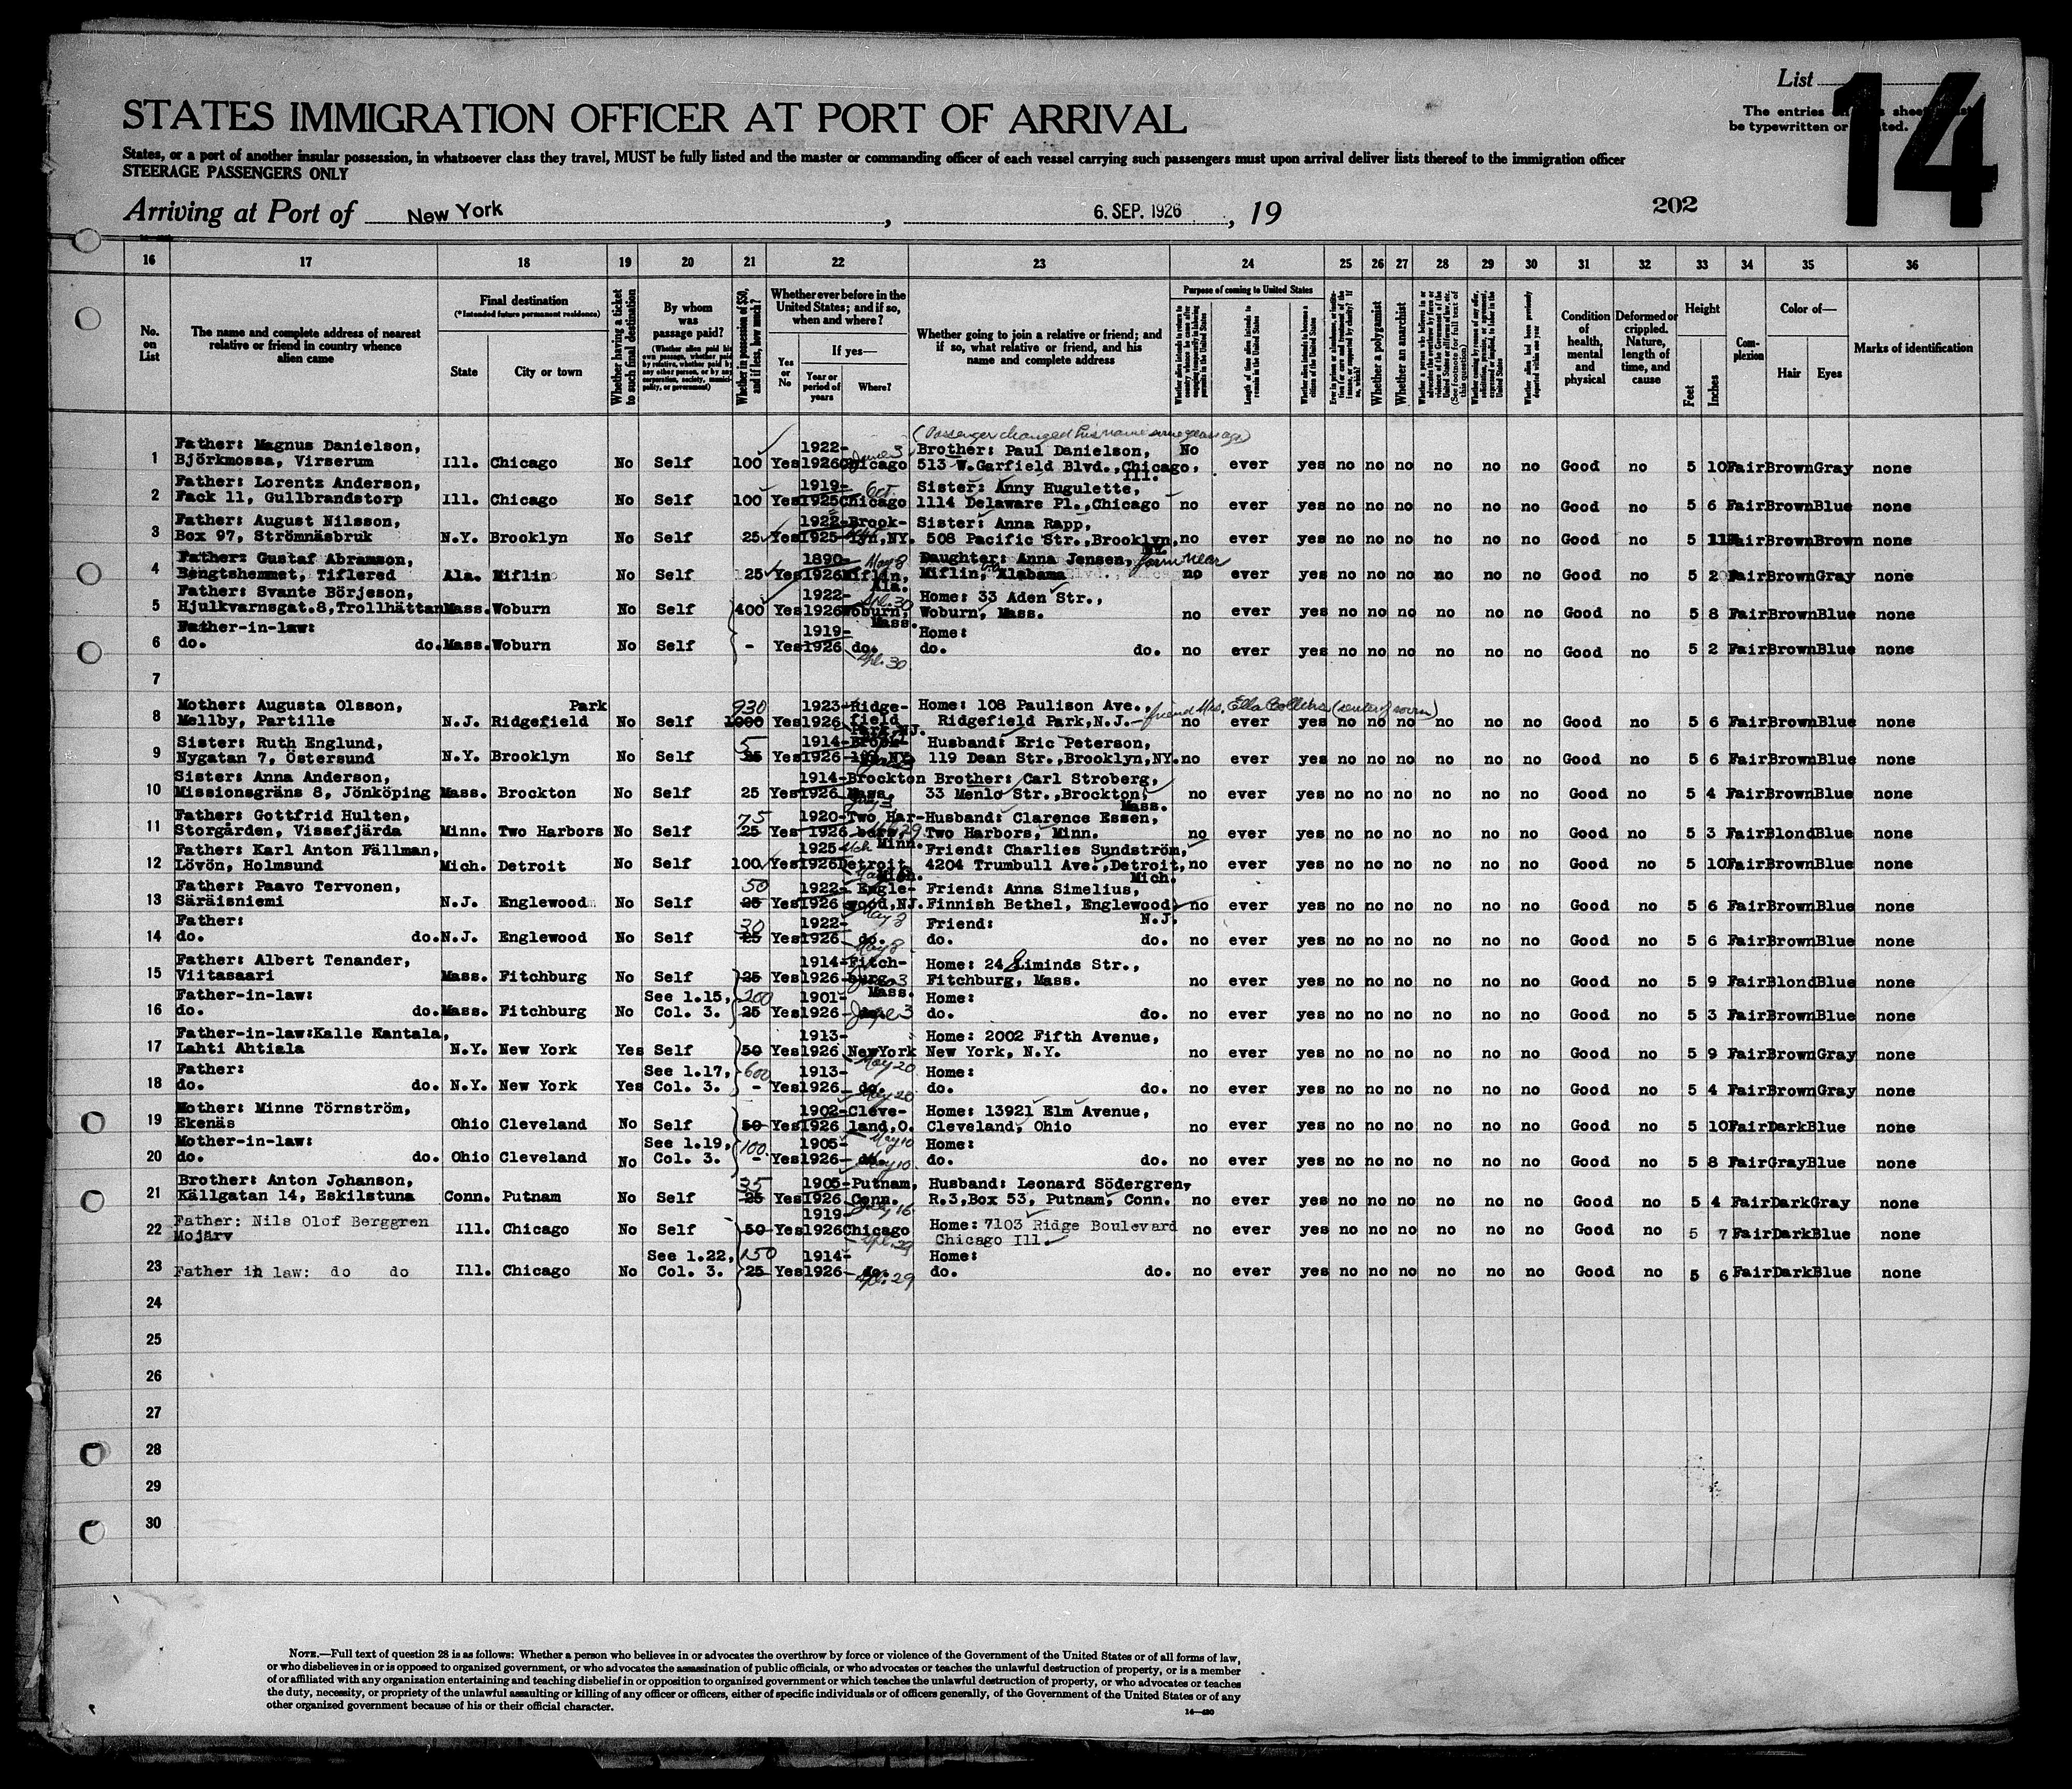 List
14
The entries on this sheet must
be typewritten or printed.
STATES IMMIGRATION OFFICER AT PORT OF ARRIVAL
States, or a port of another insular possession, in whatsoever class they travel, MUST be fully listed and the master or commanding officer of each vessel carrying such passengers must upon arrival deliver lists thereof to the immigration officer
STEERAGE PASSENGERS ONLY
Arriving at Port of New York, 6. SEP. 1926, 19
202
16 17 18 19 20 21 22 23 24 25 26 27 28 29 30 31 32 33 34 35 36
No. on List
The name and complete address of nearest relative or friend in country whence alien came
Final destination
(*Intended future permanent residence)
State
City or town
Whether having a ticket to such final destination
By whom was passage paid?
(Whether alien paid his own passage, whether paid by relative, whether paid by any other person, or by any corporation, society, municipality, or government)
Whether in possession of $50, and if less, how much?
Whether ever before in the United States; and if so, when and where?
Yes or No
If yes—
Year or period of years
Where?
Whether going to join a relative or friend; and if so, what relative or friend, and his name and complete address
Purpose of coming to United States
Length of time alien intends to remain in the United States
Whether alien intends to become a citizen of the United States
Whether a polygamist
Whether an anarchist
Condition of health, mental and physical
Deformed or crippled. Nature, length of time, and cause
Height
Feet
Inches
Complexion
Color of—
Hair
Eyes
Marks of identification
(Passenger changed his name some years ago)
Father: Magnus Danielson, 1922- June 3 Brother: Paul Danielson, No
1 Björkmossa, Virserum Ill. Chicago No Self 100 Yes 1926 Chicago 513 W.Garfield Blvd.,Chicago, ever yes no no no no no no Good no 5 10 Fair Brown Gray none
Ill.
Father: Lorentz Anderson, 1919- Oct. Sister: Anny Hugulette,
2 Fack 11, Gullbrandstorp Ill. Chicago No Self 100 Yes 1925 Chicago 1114 Delaware Pl.,Chicago no ever yes no no no no no no Good no 5 6 Fair Brown Blue none
Father: August Nilsson, 1922-Brook- Sister: Anna Rapp,
3 Box 97, Strömnäsbruk N.Y. Brooklyn No Self 25 Yes 1925 lyn,NY. 508 Pacific Str.,Brooklyn, no ever yes no no no no no no Good no 5 11 Fair Brown Brown none
NY.
Father: Gustaf Abramson, 1890- May 8 Daughter: Anna Jensen, farm near
4 Bengtshemmet, Tiflered Ala. Miflin No Self 25 Yes 1926 Miflin, Miflin, Alabama no ever yes no no no no no no Good no 5 2 Fair Brown Gray none
Ala.
Father: Svante Börjeson, 1922- Apl. 30 Home: 33 Aden Str.,
5 Hjulkvarnsgat.8,Trollhättan Mass. Woburn No Self 400 Yes 1926 Woburn, Woburn, Mass. no ever yes no no no no no no Good no 5 8 Fair Brown Blue none
Mass.
Father-in-law: 1919- Home:
6 do. do. Mass. Woburn No Self - Yes 1926 do. do. do. no ever yes no no no no no no Good no 5 2 Fair Brown Blue none
Apl. 30
7
Mother: Augusta Olsson, Park 930 1923-Ridge- Home: 108 Paulison Ave.,
8 Mellby, Partille N.J. Ridgefield No Self 1000 Yes 1926 field Ridgefield Park,N.J. friend Mrs. Ella Collins no ever yes no no no no no no Good no 5 6 Fair Brown Blue none
Park,NJ.
Sister: Ruth Englund, 5 1914-Brook- Husband: Eric Peterson,
9 Nygatan 7, Östersund N.Y. Brooklyn No Self 25 Yes 1926 lyn,NY. 119 Dean Str.,Brooklyn,NY. no ever yes no no no no no no Good no 5 6 Fair Brown Blue none
Sister: Anna Anderson, 1914-Brockton Brother: Carl Stroberg,
10 Missionsgräns 8, Jönköping Mass. Brockton No Self 25 Yes 1926 Mass. 33 Menlo Str.,Brockton, no ever yes no no no no no no Good no 5 4 Fair Brown Blue none
Mass.
Father: Gottfrid Hulten, 75 1920-Two Har- Husband: Clarence Essen,
11 Storgården, Vissefjärda Minn. Two Harbors No Self 25 Yes 1926 bors, Two Harbors, Minn. no ever yes no no no no no no Good no 5 3 Fair Blond Blue none
Minn.
Father: Karl Anton Fällman, 1925 Friend: Charlies Sundström,
12 Lövön, Holmsund Mich. Detroit No Self 100 Yes 1926 Detroit, 4204 Trumbull Ave.,Detroit, no ever yes no no no no no no Good no 5 10 Fair Brown Blue none
Mich. Mich.
Father: Paavo Tervonen, 50 1922- Engle- Friend: Anna Simelius,
13 Säräisniemi N.J. Englewood No Self 25 Yes 1926 wood,NJ. Finnish Bethel, Englewood no ever yes no no no no no no Good no 5 6 Fair Brown Blue none
May 8 N.J.
Father: 30 1922- Friend:
14 do. do. N.J. Englewood No Self 25 Yes 1926 do. do. do. no ever yes no no no no no no Good no 5 6 Fair Brown Blue none
May 8
Father: Albert Tenander, 1914-Fitch- Home: 24 Liminds Str.,
15 Viitasaari Mass. Fitchburg No Self 25 Yes 1926 burg Fitchburg, Mass. no ever yes no no no no no no Good no 5 9 Fair Blond Blue none
Mass.
Father-in-law: See 1.15, 200 1901- Home:
16 do. do. Mass. Fitchburg No Col. 3. 25 Yes 1926 do. June 3 do. do. no ever yes no no no no no no Good no 5 3 Fair Brown Blue none
Father-in-law:Kalle Kantala, 1913- Home: 2002 Fifth Avenue,
17 Lahti Ahtiala N.Y. New York Yes Self 50 Yes 1926 NewYork New York, N.Y. no ever yes no no no no no no Good no 5 9 Fair Brown Gray none
May 20
Father: See 1.17, 600 1913- Home:
18 do. do. N.Y. New York Yes Col. 3. - Yes 1926 do. do. do. no ever yes no no no no no no Good no 5 4 Fair Brown Gray none
May 20
Mother: Minne Törnström, 1902-Cleve- Home: 13921 Elm Avenue,
19 Ekenäs Ohio Cleveland No Self 50 Yes 1926 land,O. Cleveland, Ohio no ever yes no no no no no no Good no 5 10 Fair Dark Blue none
May 10
Mother-in-law: See 1.19, 100 1905- Home:
20 do. do. Ohio Cleveland No Col. 3. - Yes 1926 do. do. do. no ever yes no no no no no no Good no 5 8 Fair Gray Blue none
May 10
Brother: Anton Johanson, 35 1905-Putnam, Husband: Leonard Södergren,
21 Källgatan 14, Eskilstuna Conn. Putnam No Self 25 Yes 1926 Conn. R.3,Box 53, Putnam, Conn. no ever yes no no no no no no Good no 5 4 Fair Dark Gray none
July 16
Father: Nils Olof Berggren 1919- Home: 7103 Ridge Boulevard
22 Mojärv Ill. Chicago No Self 50 Yes 1926 Chicago Chicago Ill. no ever yes no no no no no no Good no 5 7 Fair Dark Blue none
Apl. 29
See 1.22, 150 1914- Home:
23 Father in law: do do Ill. Chicago No Col. 3. 25 Yes 1926 do. do. do. no ever yes no no no no no no Good no 5 6 Fair Dark Blue none
Apl. 29
24
25
26
27
28
29
30
NOTE.—Full text of question 28 is as follows: Whether a person who believes in or advocates the overthrow by force or violence of the Government of the United States or of all forms of law,
or who disbelieves in or is opposed to organized government, or who advocates the assassination of public officials, or who advocates or teaches the unlawful destruction of property, or is a member
of or affiliated with any organization entertaining and teaching disbelief in or opposition to organized government or which teaches the unlawful destruction of property, or who advocates or teaches
the duty, necessity, or propriety of the unlawful assaulting or killing of any officer or officers, either of specific individuals or of officers generally, of the Government of the United States or of any
other organized government because of his or their official character.
14—430